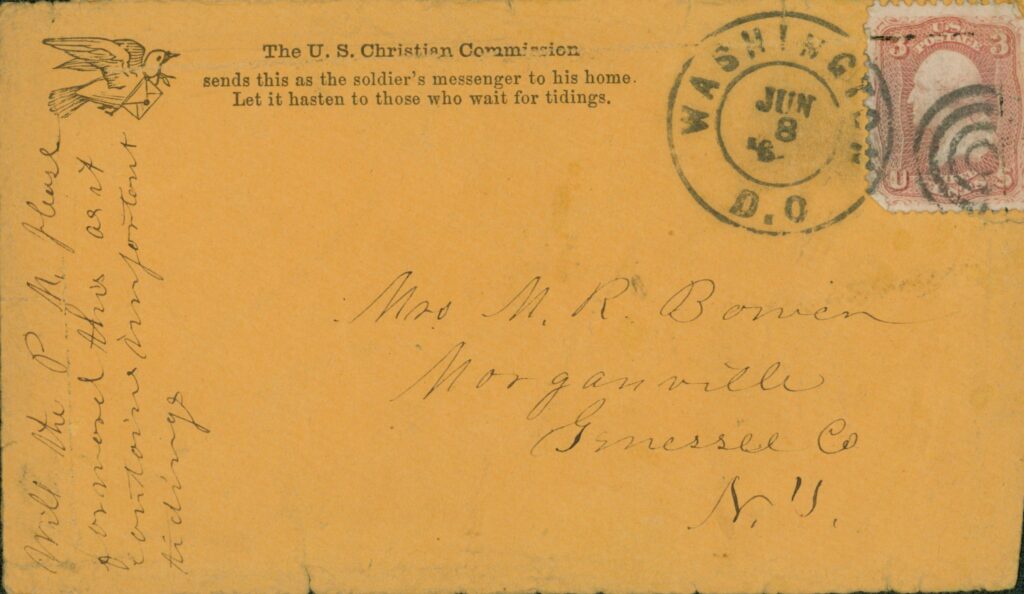 The U. S. Christian Commission
sends this as the soldier's messenger to his home.
Let it hasten to those who wait for tidings.
WASHINGTON
JUN
8
D.C
3 U.S. 3
POSTAGE
U S
Mrs M. R. Bowen
Morganville
Genessee Co
N. Y.
Will the P M please
forward this as it
contains important
tidings